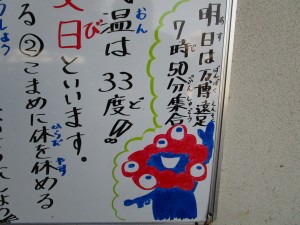 明日は万博遠足
7時50分集合
温は33度!!
日といいます。
る②こまめに体を休める